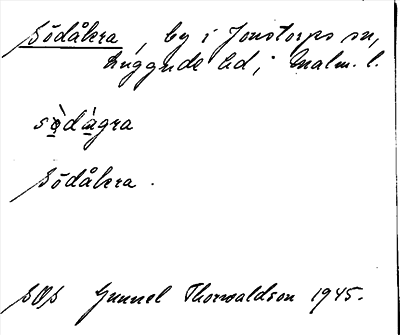 Södåkra, by i Jonstorps sn,
Luggude hd, Malm. l.
sò̱dà̱gra
Södåkra.
SOS Gunnel Thorwaldson 1945.